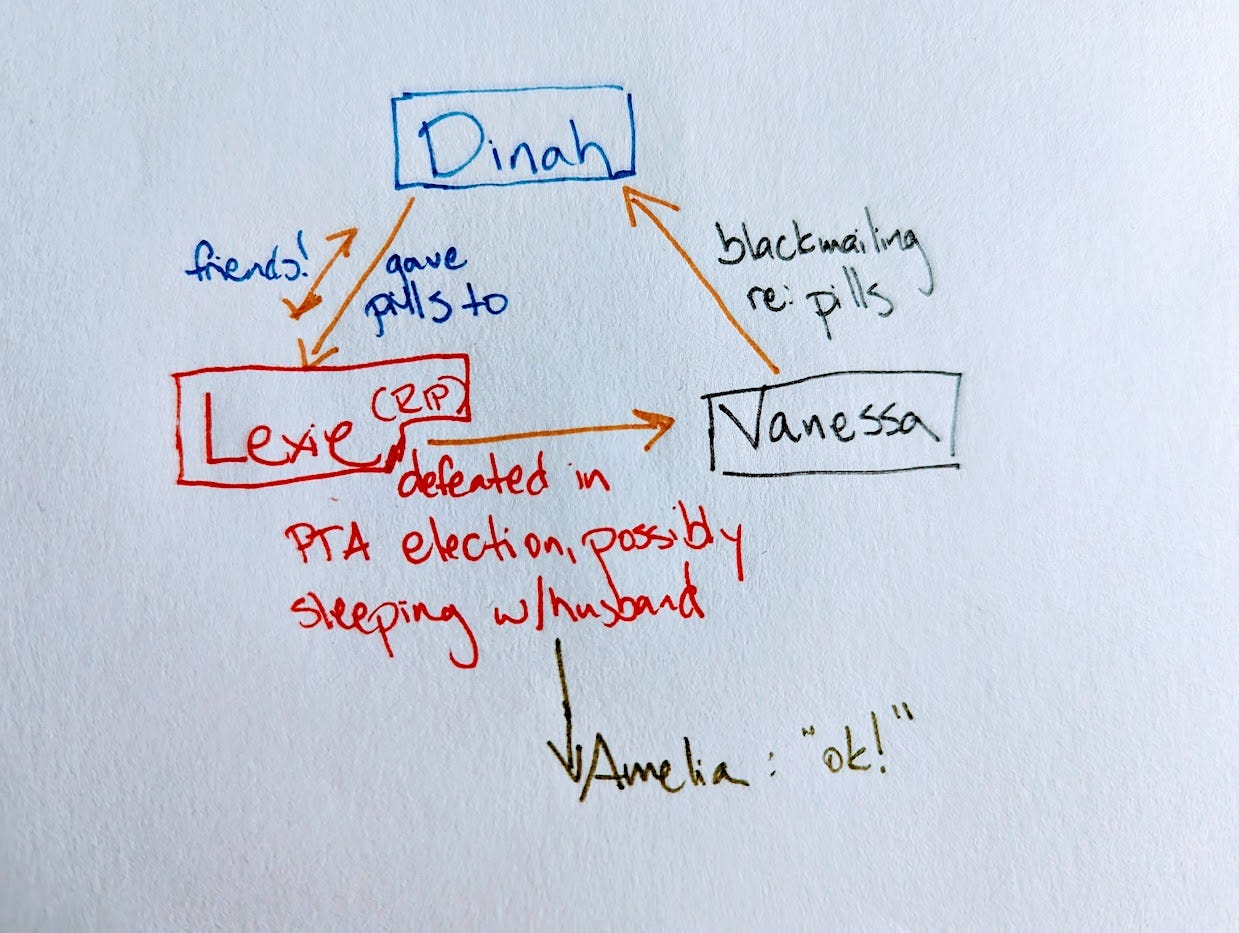 Dinah
friends!
gave
pills to
blackmailing
re: pills
Lexie (RIP)
Vanessa
defeated in
PTA election, possibly
sleeping w/husband
Amelia: "ok!"